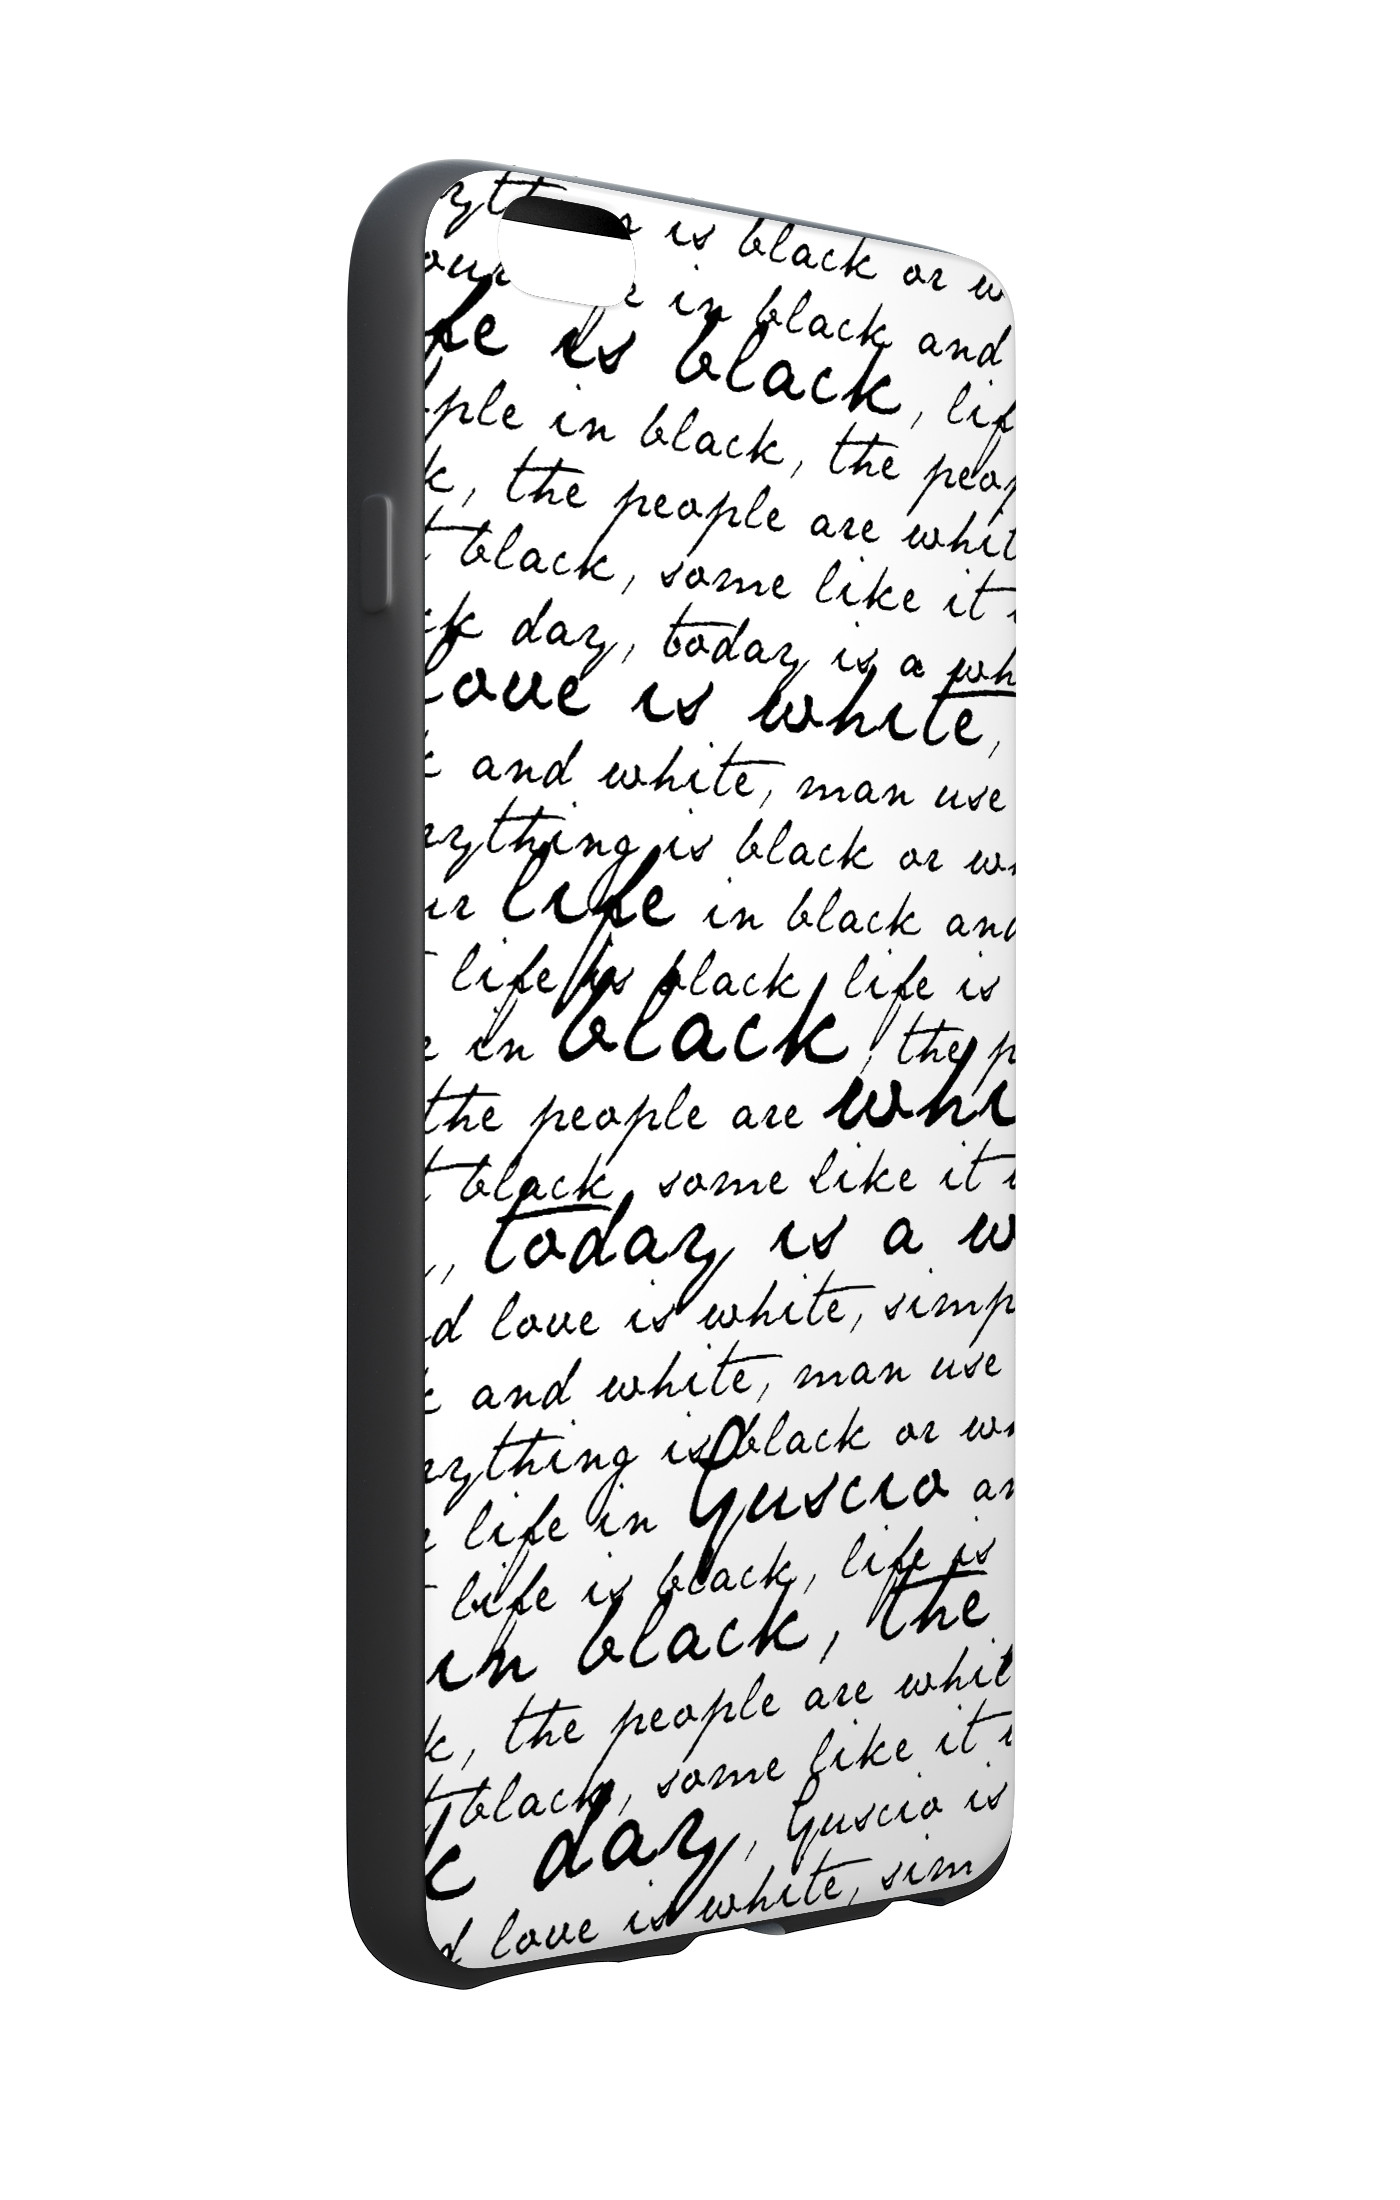 is black or w
our in black and
fe is black, lif
ple in black, the peop
k, the people are whit
t black, some like it
ck day, today is a wh
love is white,
k and white, man use
rything is black or wh
ur life in black and
life is black, life is
e in black, the p
the people are whi
t black, some like it
, today is a w
d love is white, simp
k and white, man use
rything is black or wh
life in Guscio an
life is black, life is
in black, the
k, the people are whit
t black, some like it
k day, Guscio is
d love is white, sim